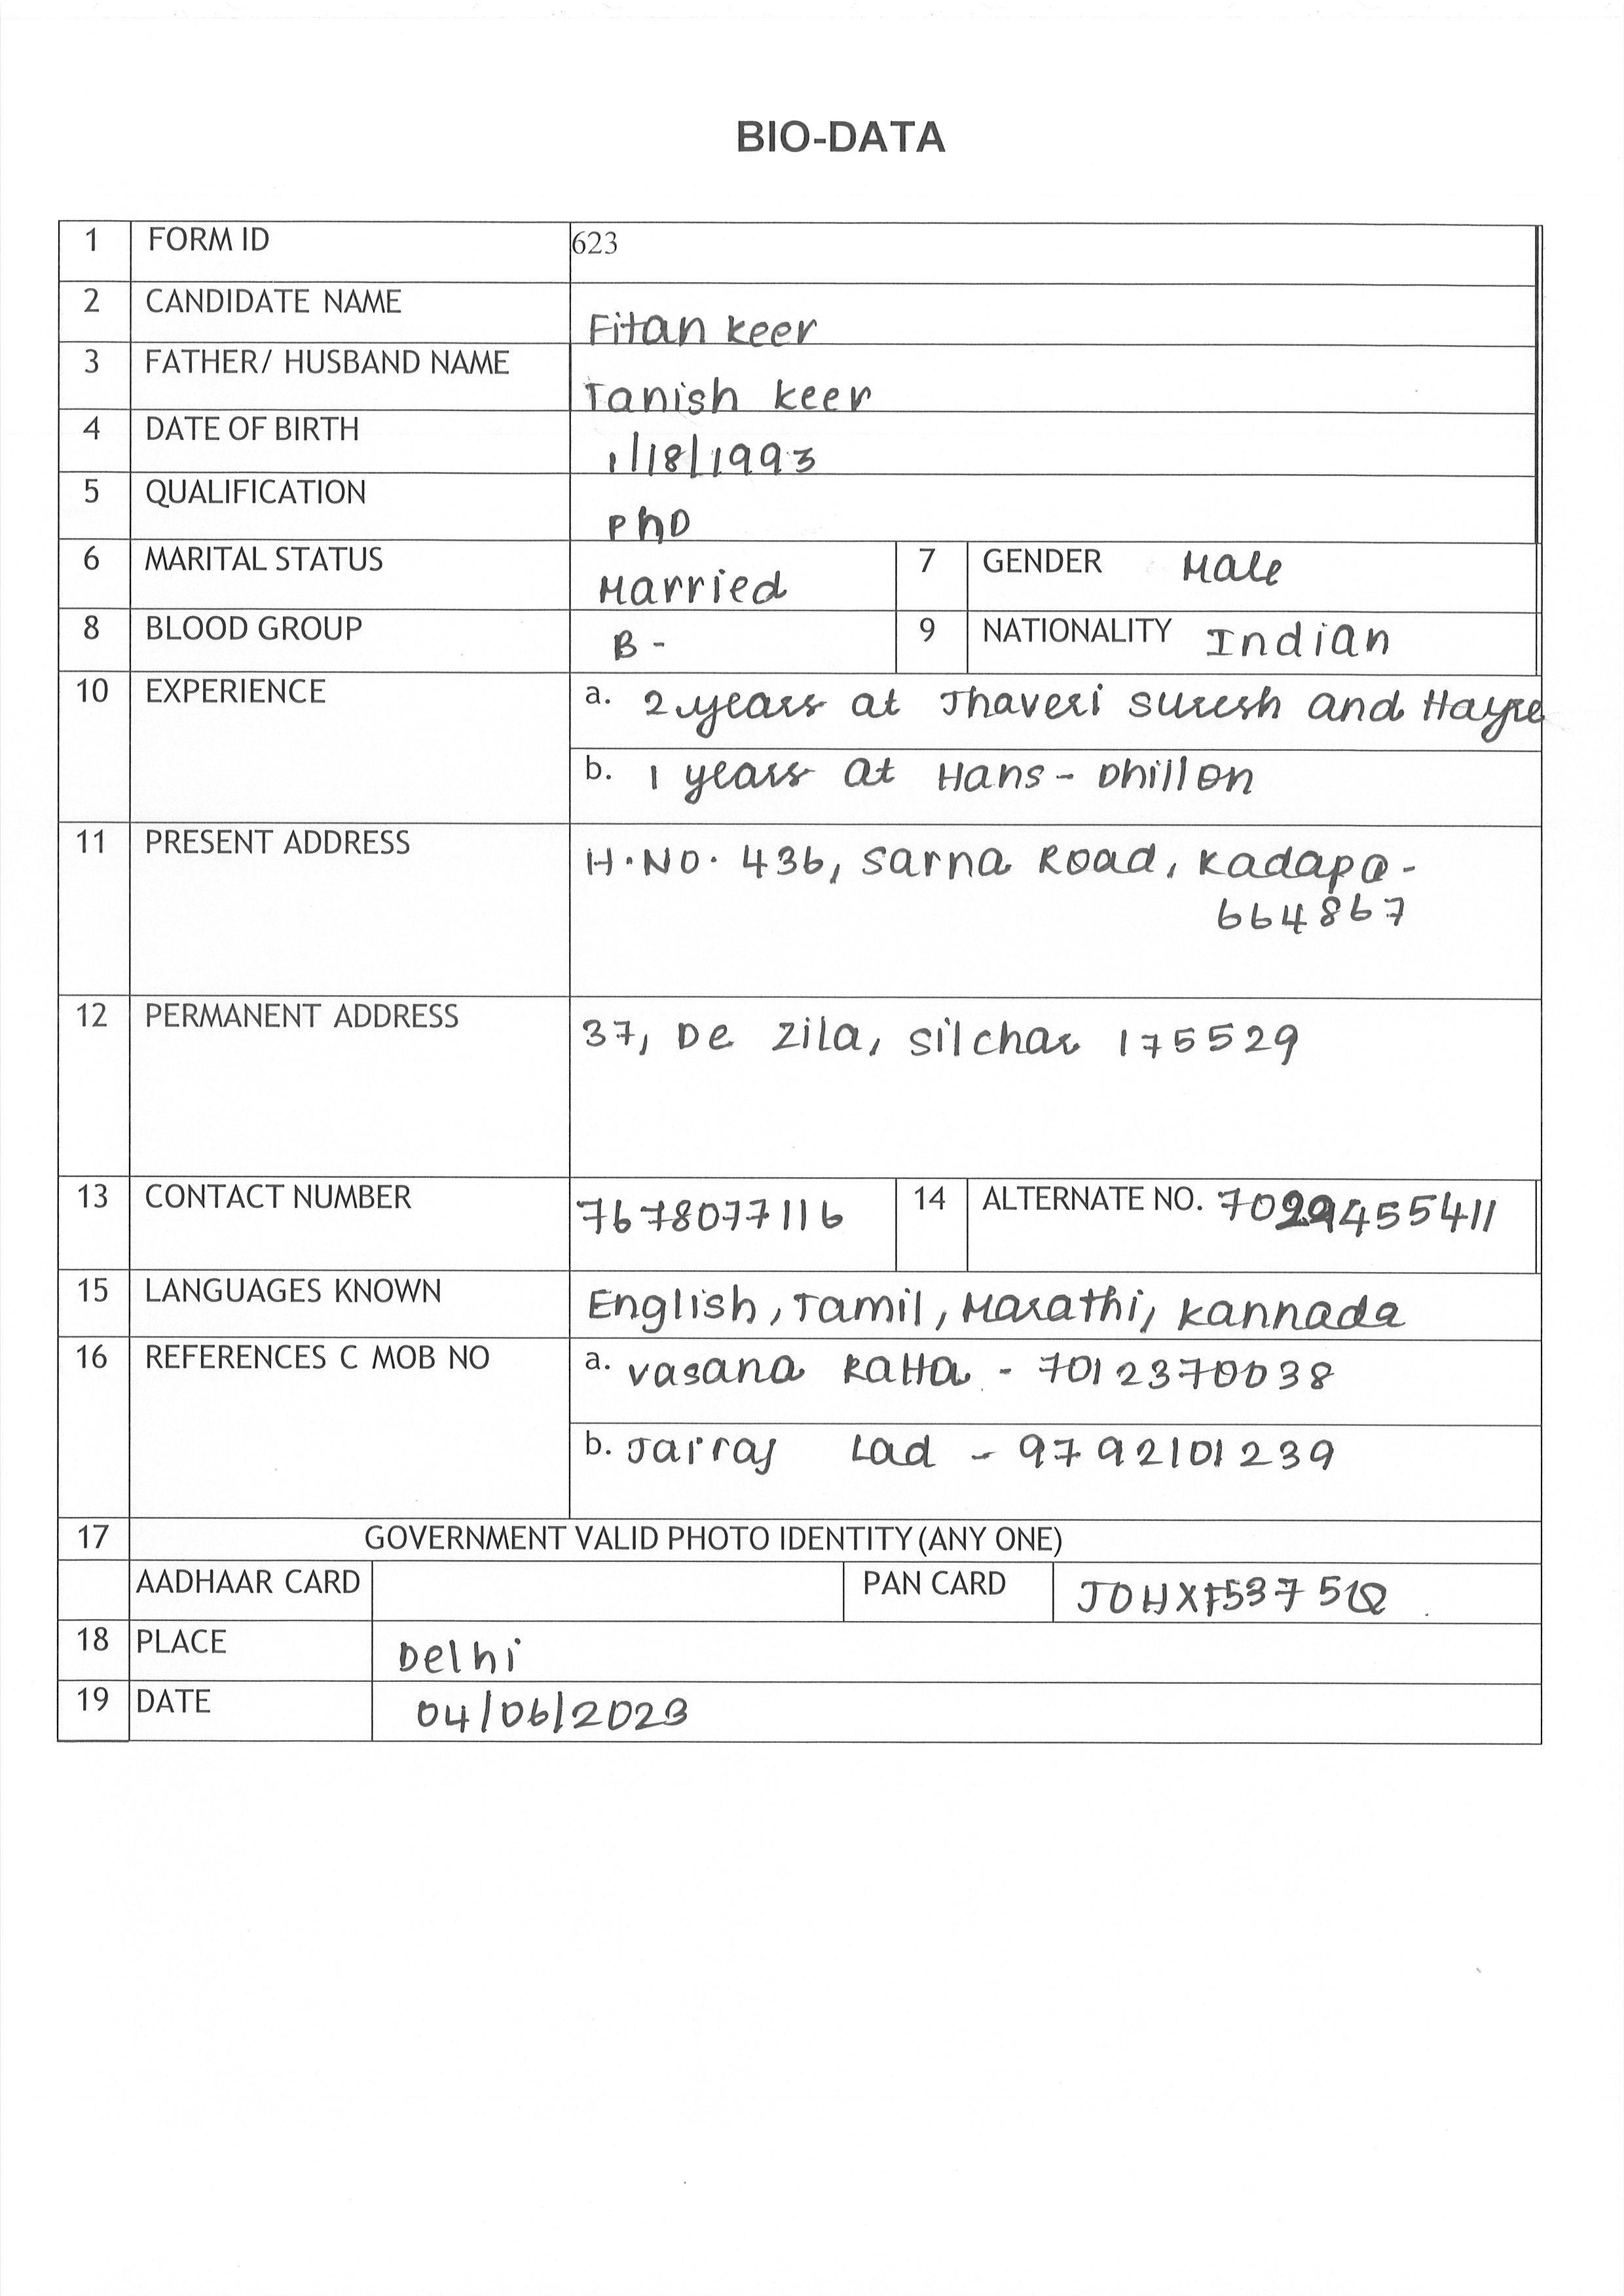 BIO-DATA
1 FORM ID 623
2 CANDIDATE NAME Fitan Keer
3 FATHER/ HUSBAND NAME Tanish Keer
4 DATE OF BIRTH 1/18/1993
5 QUALIFICATION PhD
6 MARITAL STATUS Married 7 GENDER Male
8 BLOOD GROUP B- 9 NATIONALITY Indian
10 EXPERIENCE a. 2 years at Jhaveri Suresh and Hayre
b. 1 years at Hans-Dhillon
11 PRESENT ADDRESS H.No. 436, Sarna Road, Kadapa -
664867
12 PERMANENT ADDRESS 37, De Zila, Silchar 175529
13 CONTACT NUMBER 7678077116 14 ALTERNATE NO. 7029455411
15 LANGUAGES KNOWN English, Tamil, Marathi, Kannada
16 REFERENCES C MOB NO a. Vasana Ratta - 7012370038
b. Jairaj Lad - 9792101239
17 GOVERNMENT VALID PHOTO IDENTITY (ANY ONE)
AADHAAR CARD PAN CARD
18 PLACE Delhi
19 DATE 04/06/2023